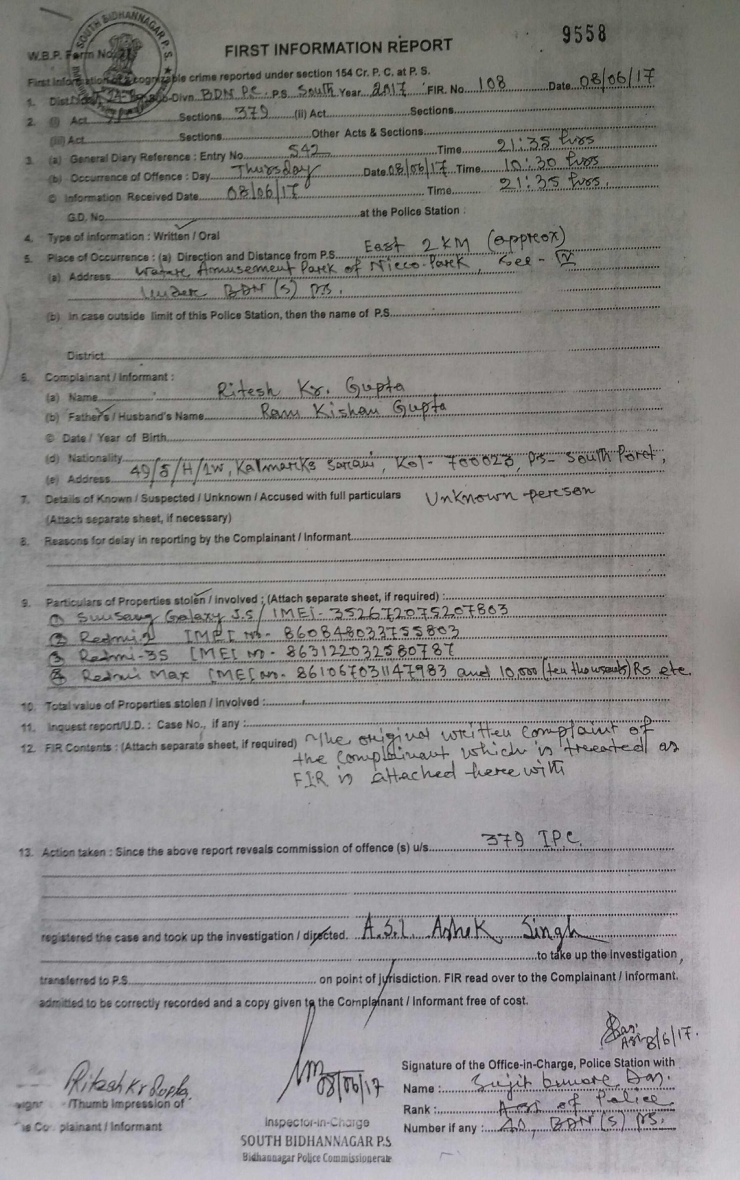 SOUTH BIDHANNAGAR P.S
9558
W.B.P. Form No.
FIRST INFORMATION REPORT
First Information of cognizable crime reported under section 154 Cr. P. C. at P. S.
1. Dist. Sub-Divn. BDN P.C. P.S. South Year 2017 FIR. No. 108 Date 08/06/17
2. (i) Act Sections 379 (ii) Act Sections
(iii) Act Sections Other Acts & Sections
3. (a) General Diary Reference : Entry No. 542 Time 21:35 hrs
(b) Occurrence of Offence : Day Thursday Date 08/06/17 Time 10:30 hrs
© Information Received Date 08/06/17 Time 21:35 hrs.
G.D. No. at the Police Station :
4. Type of information : Written / Oral
5. Place of Occurrence : (a) Direction and Distance from P.S. East 2 KM (approx)
(a) Address Watare Amusement Park of Nicco-Park, See - IV
Under BDN (S) PS.
(b) In case outside limit of this Police Station, then the name of P.S.
District
6. Complainant / Informant :
(a) Name Ritesh Kr. Gupta
(b) Father's / Husband's Name Ram Kishan Gupta
© Date / Year of Birth
(d) Nationality
(e) Address 49/5/H/1W, Kalmarks Sarani, Kol- 700023, PS- South Poret,
7. Details of Known / Suspected / Unknown / Accused with full particulars Unknown person
(Attach separate sheet, if necessary)
8. Reasons for delay in reporting by the Complainant / Informant
9. Particulars of Properties stolen / involved : (Attach separate sheet, if required) :
① Sumsang Galaxy J.5/ IMEI- 352672075207803
② Redmi-2 IMEI No- 860848033755803
③ Redmi-3S IMEI no- 863122032580787
④ Redmi Max IMEI no- 861067031147983 and 10,000 (ten thousands) Rs etc.
10. Total value of Properties stolen / involved :
11. Inquest report/U.D. : Case No., if any :
12. FIR Contents : (Attach separate sheet, if required) The original written complaint of
the complainant which is treeated as
FIR is attached here with
13. Action taken : Since the above report reveals commission of offence (s) u/s 379 IPC.
registered the case and took up the investigation / directed. A.S.I. Ashok Singh
to take up the investigation
transferred to P.S. on point of jurisdiction. FIR read over to the Complainant / Informant.
admitted to be correctly recorded and a copy given to the Complainant / Informant free of cost.
ASI 8/6/17.
Signature of the Office-in-Charge, Police Station with
Ritesh Kr Gupta
08/06/17
Name : Sujit kumare Das.
/Thumb Impression of
Rank : Asi of Police
Complainant / Informant
Inspector-in-Charge
Number if any : BDN (S) PS.
SOUTH BIDHANNAGAR P.S
Bidhannagar Police Commissionerate